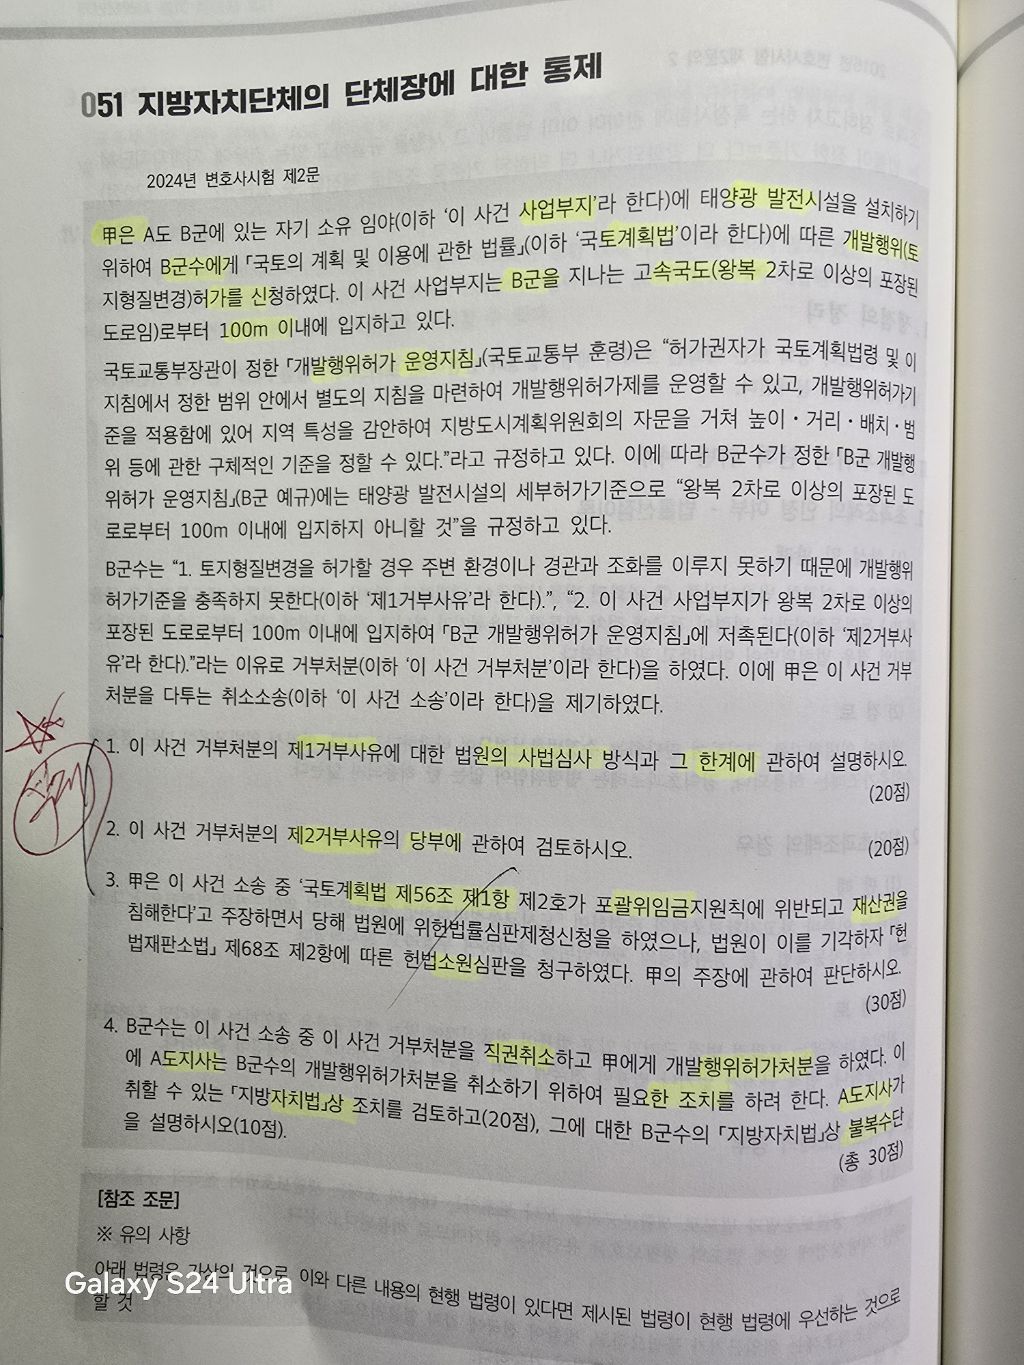 051 지방자치단체의 단체장에 대한 통제
2024년 변호사시험 제2문
甲은 A도 B군에 있는 자기 소유 임야(이하 '이 사건 사업부지'라 한다)에 태양광 발전시설을 설치하기
위하여 B군수에게 「국토의 계획 및 이용에 관한 법률」(이하 '국토계획법'이라 한다)에 따른 개발행위(토
지형질변경)허가를 신청하였다. 이 사건 사업부지는 B군을 지나는 고속국도(왕복 2차로 이상의 포장된
도로임)로부터 100m 이내에 입지하고 있다.
국토교통부장관이 정한 「개발행위허가 운영지침」(국토교통부 훈령)은 "허가권자가 국토계획법령 및 이
지침에서 정한 범위 안에서 별도의 지침을 마련하여 개발행위허가제를 운영할 수 있고, 개발행위허가기
준을 적용함에 있어 지역 특성을 감안하여 지방도시계획위원회의 자문을 거쳐 높이·거리·배치·범
위 등에 관한 구체적인 기준을 정할 수 있다."라고 규정하고 있다. 이에 따라 B군수가 정한 「B군 개발행
위허가 운영지침」(B군 예규)에는 태양광 발전시설의 세부허가기준으로 "왕복 2차로 이상의 포장된 도
로로부터 100m 이내에 입지하지 아니할 것"을 규정하고 있다.
B군수는 "1. 토지형질변경을 허가할 경우 주변 환경이나 경관과 조화를 이루지 못하기 때문에 개발행위
허가기준을 충족하지 못한다(이하 '제1거부사유'라 한다).", "2. 이 사건 사업부지가 왕복 2차로 이상의
포장된 도로로부터 100m 이내에 입지하여 「B군 개발행위허가 운영지침」에 저촉된다(이하 '제2거부사
유'라 한다)."라는 이유로 거부처분(이하 '이 사건 거부처분'이라 한다)을 하였다. 이에 甲은 이 사건 거부
처분을 다투는 취소소송(이하 '이 사건 소송'이라 한다)을 제기하였다.
1. 이 사건 거부처분의 제1거부사유에 대한 법원의 사법심사 방식과 그 한계에 관하여 설명하시오.
(20점)
2. 이 사건 거부처분의 제2거부사유의 당부에 관하여 검토하시오. (20점)
3. 甲은 이 사건 소송 중 '국토계획법 제56조 제1항 제2호가 포괄위임금지원칙에 위반되고 재산권을
침해한다'고 주장하면서 당해 법원에 위헌법률심판제청신청을 하였으나, 법원이 이를 기각하자 「헌
법재판소법」 제68조 제2항에 따른 헌법소원심판을 청구하였다. 甲의 주장에 관하여 판단하시오.
(30점)
4. B군수는 이 사건 소송 중 이 사건 거부처분을 직권취소하고 甲에게 개발행위허가처분을 하였다. 이
에 A도지사는 B군수의 개발행위허가처분을 취소하기 위하여 필요한 조치를 하려 한다. A도지사가
취할 수 있는 「지방자치법」상 조치를 검토하고(20점), 그에 대한 B군수의 「지방자치법」상 불복수단
을 설명하시오(10점).
(총 30점)
[참조 조문]
※ 유의 사항
아래 법령은 가상의 것으로, 이와 다른 내용의 현행 법령이 있다면 제시된 법령이 현행 법령에 우선하는 것으로
할 것
Galaxy S24 Ultra